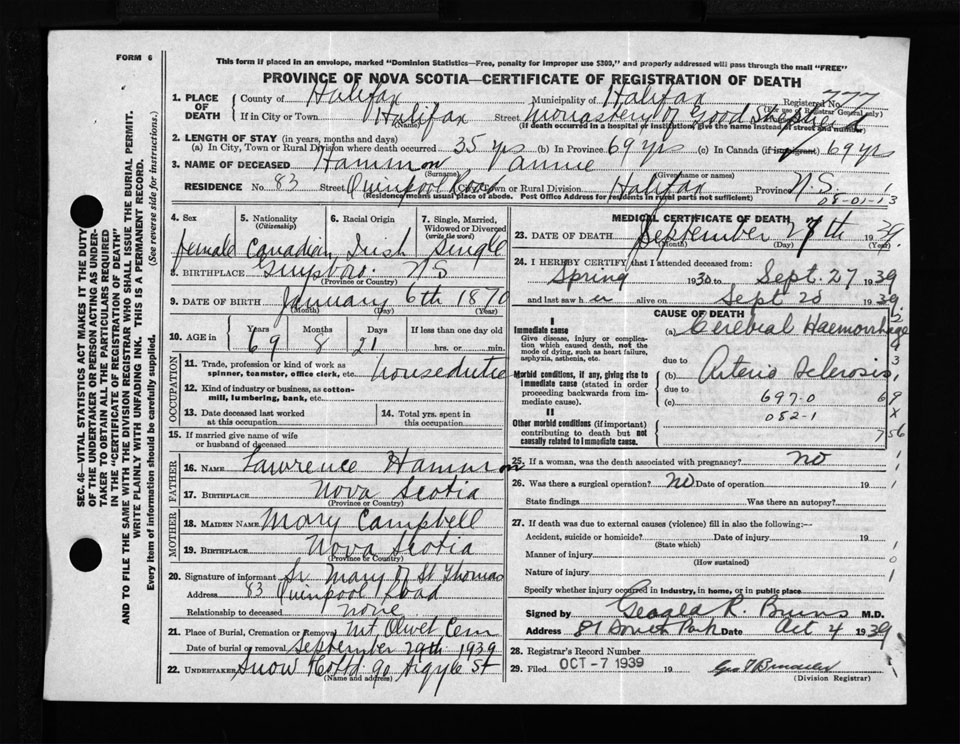 FORM 6
This form if placed in an envelope, marked "Dominion Statistics—Free, penalty for improper use $300," and properly addressed will pass through the mail "FREE"
PROVINCE OF NOVA SCOTIA—CERTIFICATE OF REGISTRATION OF DEATH
SEC. 46—VITAL STATISTICS ACT MAKES IT THE DUTY
OF THE UNDERTAKER OR PERSON ACTING AS UNDER-
TAKER TO OBTAIN ALL THE PARTICULARS REQUIRED
IN THE "CERTIFICATE OF REGISTRATION OF DEATH"
AND TO FILE THE SAME WITH THE DIVISION REGISTRAR WHO SHALL ISSUE THE BURIAL PERMIT.
WRITE PLAINLY WITH UNFADING INK. THIS IS A PERMANENT RECORD.
Every item of information should be carefully supplied. (See reverse side for instructions.)
1. PLACE OF DEATH County of Halifax Municipality of Halifax Registered No. 777
(For use of Registrar General only)
If in City or Town Halifax Street Monastery of Good Shepherd
(Name) (If death occurred in a hospital or institution, give the name instead of street and number)
2. LENGTH OF STAY (in years, months and days)
(a) In City, Town or Rural Division where death occurred 35 yrs (b) In Province 69 yrs (c) In Canada (if immigrant) 69 yrs
3. NAME OF DECEASED Hammon Annie
(Surname) (Given name or names)
RESIDENCE No. 83 Street Quinpool Road City, Town or Rural Division Halifax Province N.S.
(Residence means usual place of abode. Post Office Address for residents in rural parts not sufficient) 08-01-13
4. Sex 5. Nationality (Citizenship) 6. Racial Origin 7. Single, Married, Widowed or Divorced (write the word)
female Canadian Irish Single
8. BIRTHPLACE N S
(Province or Country)
9. DATE OF BIRTH January 6th 1870
(Month) (Day) (Year)
10. AGE Years Months Days If less than one day old
69 8 21 hrs. or min.
OCCUPATION
11. Trade, profession or kind of work as spinner, teamster, office clerk, etc.
12. Kind of industry or business, as cotton-mill, lumbering, bank, etc.
13. Date deceased last worked at this occupation 14. Total yrs. spent in this occupation
15. If married give name of wife or husband of deceased
FATHER
16. NAME Lawrence Hammon
17. BIRTHPLACE Nova Scotia
(Province or Country)
MOTHER
18. MAIDEN NAME Mary Campbell
19. BIRTHPLACE Nova Scotia
(Province or Country)
20. Signature of informant Sr. Mary of St Thomas
Address 83 Quinpool Road
Relationship to deceased none
21. Place of Burial, Cremation or Removal Mt. Olivet Cem
Date of burial or removal September 29th 1939
22. UNDERTAKER Snow & Co Ltd 90 Argyle St
(Name and address)
MEDICAL CERTIFICATE OF DEATH
23. DATE OF DEATH September 27th 1939
(Month) (Day) (Year)
24. I HEREBY CERTIFY that I attended deceased from
Spring 1930 to Sept. 27 1939
and last saw her alive on Sept 20 1939
CAUSE OF DEATH
I
Immediate cause
Give disease, injury or complication which caused death, not the mode of dying, such as heart failure, asphyxia, asthenia, etc.
(a) Cerebral Haemorrhage
due to
Morbid conditions, if any, giving rise to immediate cause (stated in order proceeding backwards from immediate cause)
(b) Arterio Sclerosis
due to
(c) 697-0
II
082-1
Other morbid conditions (if important) contributing to death but not causally related to immediate cause.
756
25. If a woman, was the death associated with pregnancy? no
26. Was there a surgical operation? NO Date of operation 19
State findings Was there an autopsy?
27. If death was due to external causes (violence) fill in also the following:—
Accident, suicide or homicide? Date of injury 19
(State which)
Manner of injury
(How sustained)
Nature of injury
Specify whether injury occurred in Industry, in home, or in public place
Signed by Gerald R. Burns M.D.
Address 81 South Park Date Oct 4 1939
28. Registrar's Record Number
29. Filed OCT - 7 1939 19
(Division Registrar)